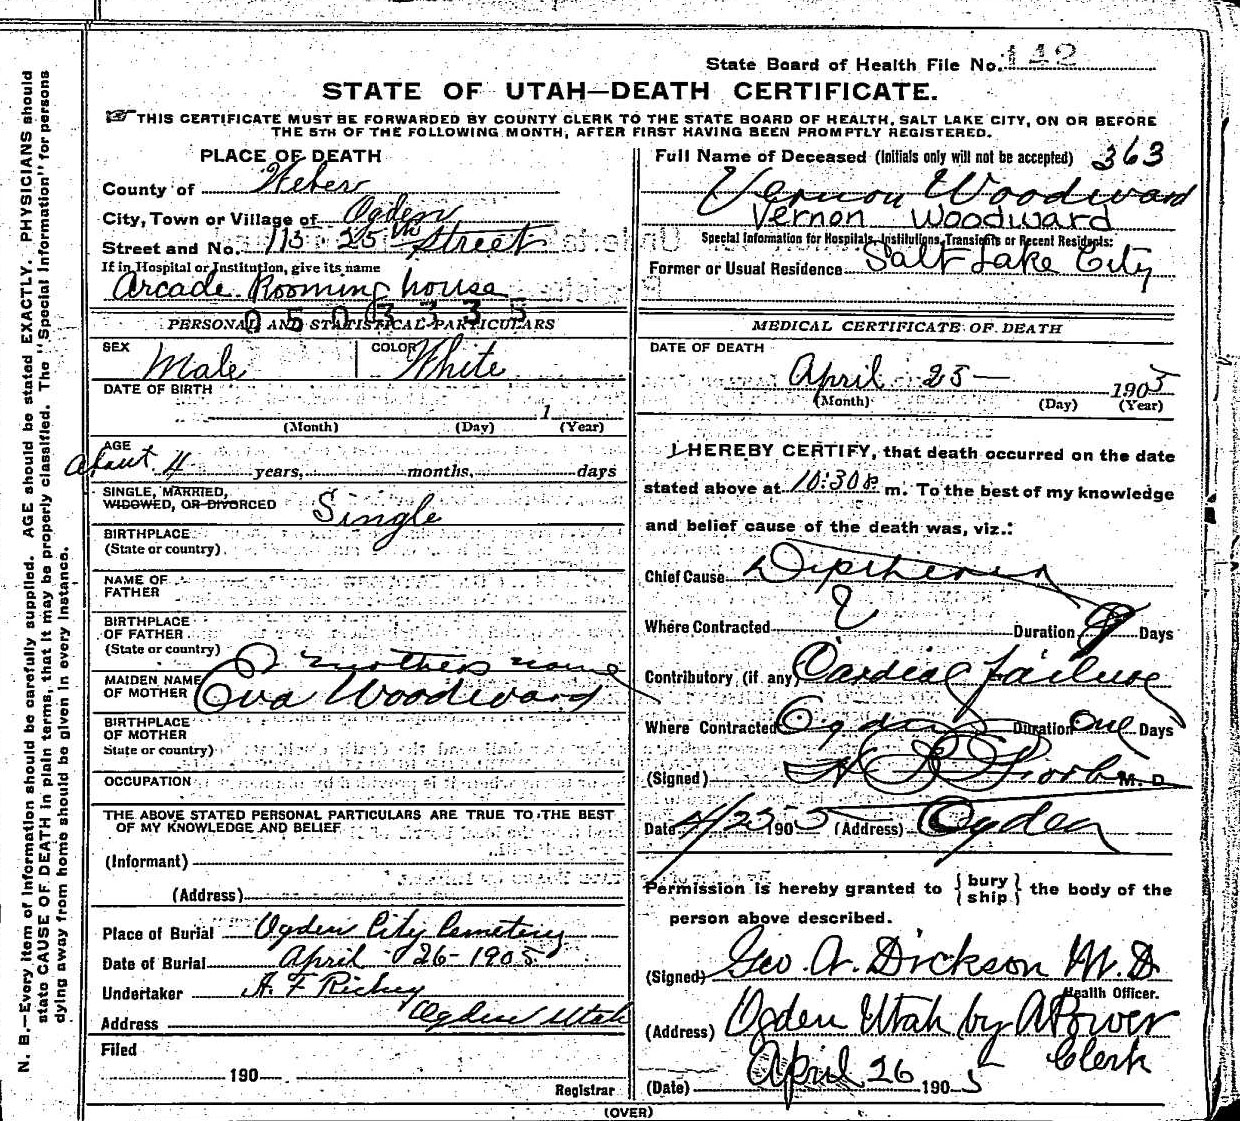 State Board of Health File No. 142
STATE OF UTAH—DEATH CERTIFICATE.
THIS CERTIFICATE MUST BE FORWARDED BY COUNTY CLERK TO THE STATE BOARD OF HEALTH, SALT LAKE CITY, ON OR BEFORE
THE 5TH OF THE FOLLOWING MONTH, AFTER FIRST HAVING BEEN PROMPTLY REGISTERED.
N. B.—Every item of information should be carefully supplied. AGE should be stated EXACTLY. PHYSICIANS should
state CAUSE OF DEATH in plain terms, that it may be properly classified. The "Special Information" for persons
dying away from home should be given in every instance.
PLACE OF DEATH
County of Weber
City, Town or Village of Ogden
Street and No. 113 - 25th Street
If in Hospital or Institution, give its name
Arcade Rooming house
0503335
PERSONAL AND STATISTICAL PARTICULARS
SEX Male COLOR White
DATE OF BIRTH
1
(Month) (Day) (Year)
AGE
about 4 years, months, days
SINGLE, MARRIED,
WIDOWED, OR DIVORCED Single
BIRTHPLACE
(State or country)
NAME OF
FATHER
BIRTHPLACE
OF FATHER
(State or country)
mothers name
MAIDEN NAME
OF MOTHER Eva Woodward
BIRTHPLACE
OF MOTHER
State or country)
OCCUPATION
THE ABOVE STATED PERSONAL PARTICULARS ARE TRUE TO THE BEST
OF MY KNOWLEDGE AND BELIEF
(Informant)
(Address)
Place of Burial Ogden City Cemetery
Date of Burial April - 26 - 1905
Undertaker A. F. Richey
Address Ogden Utah
Filed
190
Registrar
Full Name of Deceased (Initials only will not be accepted) 363
Vernon Woodward
Vernon Woodward
Special Information for Hospitals, Institutions, Transients or Recent Residents:
Former or Usual Residence Salt Lake City
MEDICAL CERTIFICATE OF DEATH
DATE OF DEATH
April 25 — 1905
(Month) (Day) (Year)
I HEREBY CERTIFY, that death occurred on the date
stated above at 10:30 m. To the best of my knowledge
and belief cause of the death was, viz.:
Chief Cause Diptheria
Where Contracted ? Duration Days
Contributory (if any) Cardiac failure
Where Contracted Ogden Duration One Days
(Signed) M. D.
Date 4/25 1905 (Address) Ogden
Permission is hereby granted to {bury ship} the body of the
person above described.
(Signed) Geo. A. Dickson M.D.
Health Officer.
(Address) Ogden Utah by A Power
Clerk
(Date) April 26 1905
(OVER)